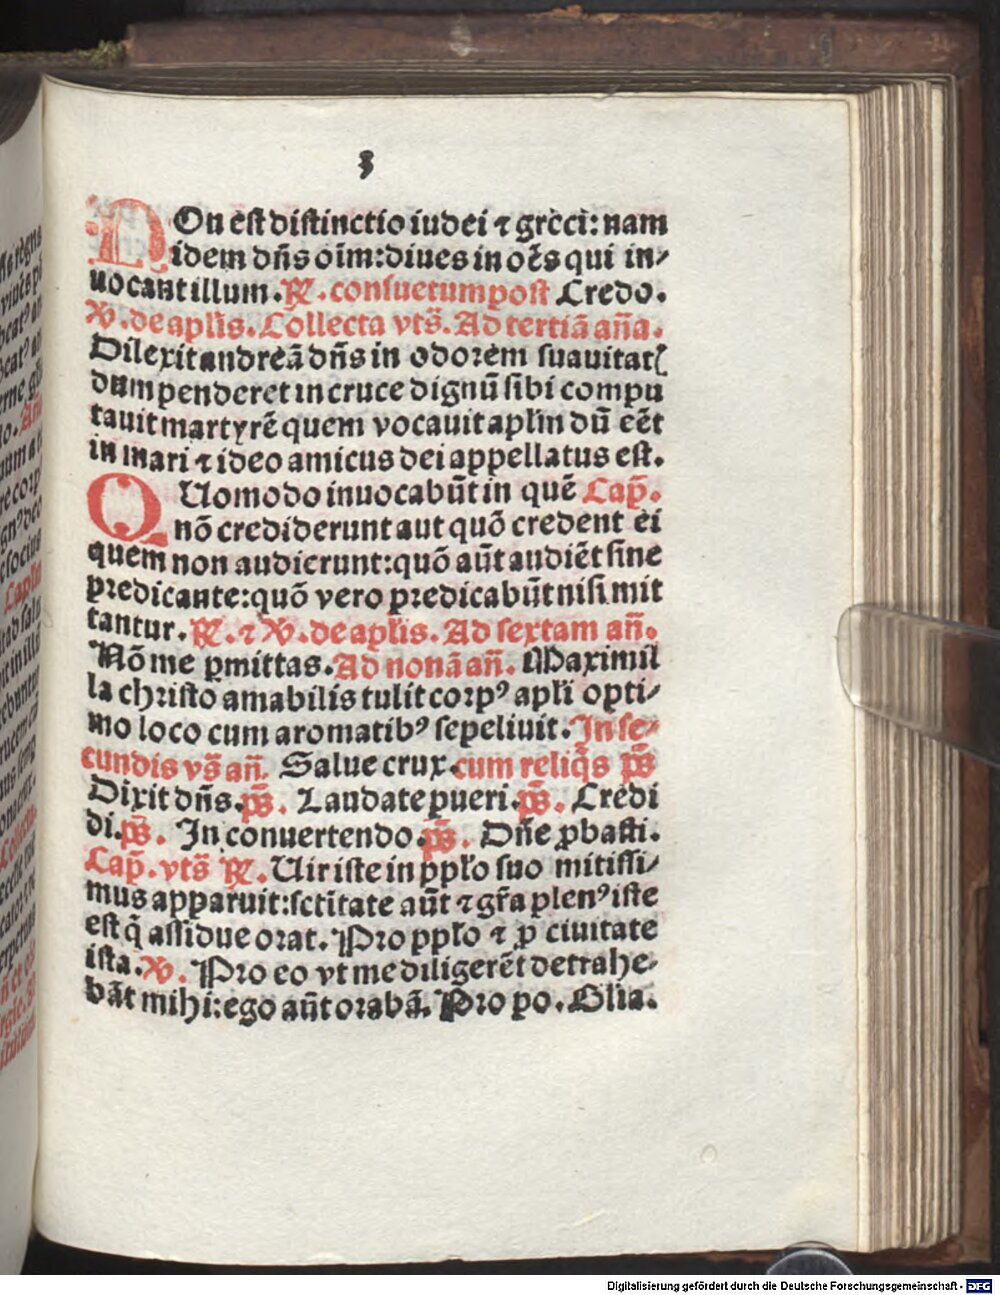 3
NOn est distinctio iudei ⁊ greci: nam
idem dn̄s oīm: diues in oēs qui in⸗
uocant illum. ℟. consuetum post Credo.
℣. de apl̄is. Collecta vts̄. Ad tertiā an̄a.
Dilexit andreā dn̄s in odorem suauitat
dum penderet in cruce dignū sibi compu
tauit martyrē quem vocauit apl̄m dū eēt
in mari ⁊ ideo amicus dei appellatus est.
QUomodo inuocabūt in quē Cap̄.
nō crediderunt aut quō credent ei
quem non audierunt: quō aūt audiēt sine
predicante: quō vero predicabūt nisi mit
tantur. ℟. ⁊ ℣. de apl̄is. Ad sextam an̄.
Nō me ꝑmittas. Ad nonā an̄. Maximil
la christo amabilis tulit corpꝰ apl̄i opti⸗
mo loco cum aromatibꝰ sepeliuit. In se⸗
cundis vs̄ an̄. Salue crux. cum reliq̄s ps̄
Dixit dn̄s. ps̄. Laudate pueri. ps̄. Credi
di. ps̄. In conuertendo. ps̄. Dn̄e ꝓbasti.
Cap̄. vts̄ ℟. Uir iste in ppl̄o suo mitissi⸗
mus apparuit: sctītate aūt ⁊ gr̄a plenꝰ iste
est q̄ assidue orat. Pro ppl̄o ⁊ ꝓ ciuitate
ista. ℣. Pro eo vt me diligerēt detrahe⸗
bāt mihi: ego aūt orabā. Pro po. Glīa.
Digitalisierung gefördert durch die Deutsche Forschungsgemeinschaft - DFG